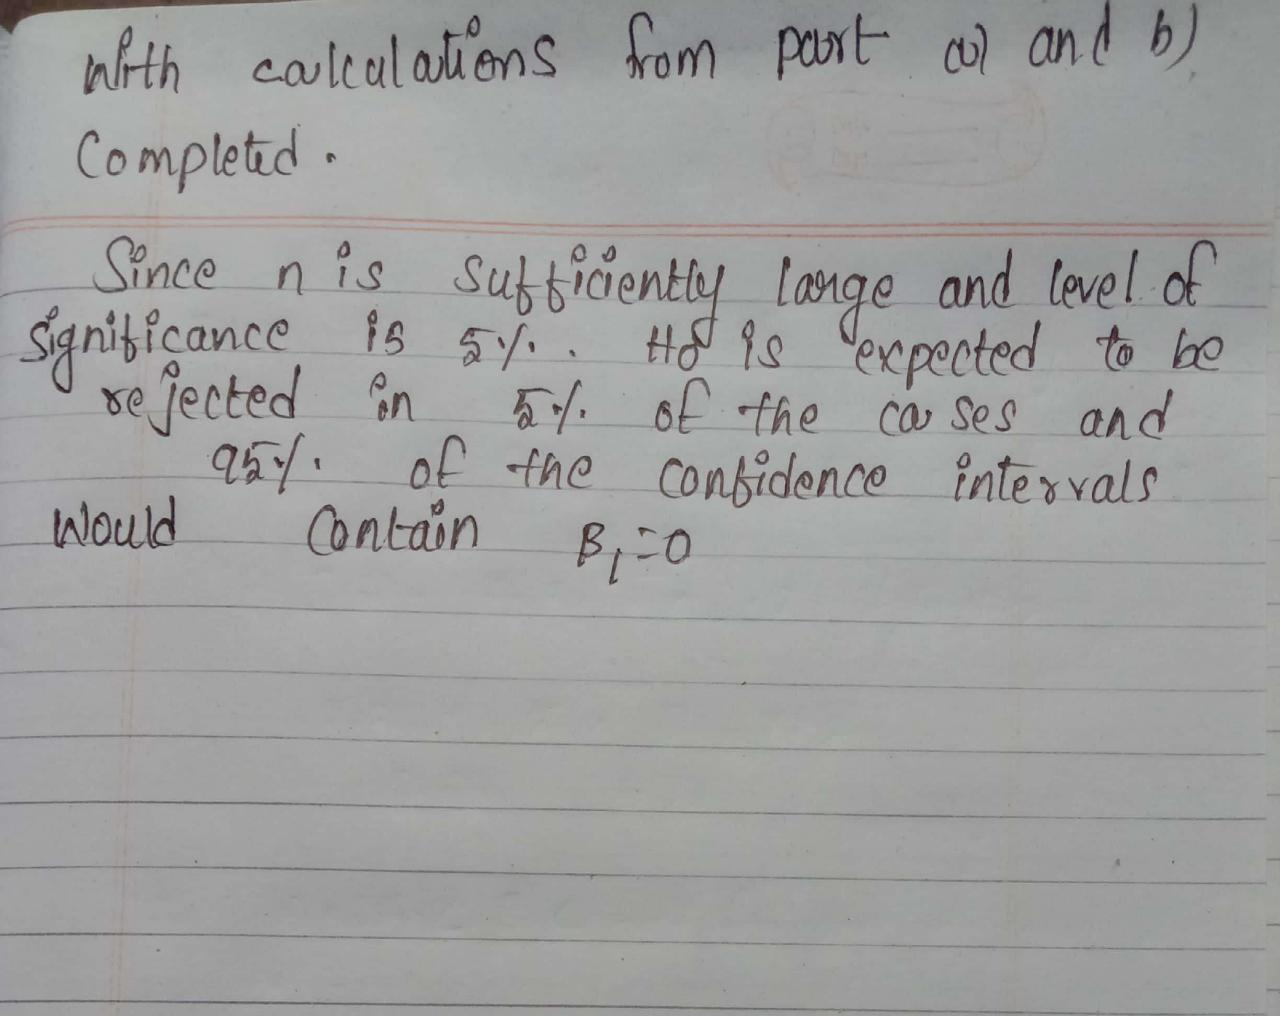 With calculations from part a) and b)
Completed.
Since n is sufficiently large and level of
significance is 5%. H0 is expected to be
rejected in 5% of the cases and
95% of the confidence intervals
would contain B1=0